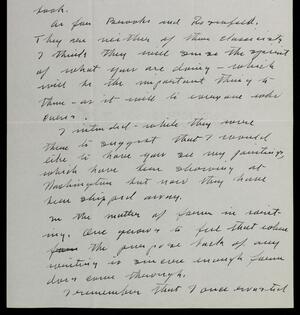 book.
As for Brooks and Rosenfeld.
They are neither of them classicists
I think they will sense the spirit
of what you are doing – which
will be the important thing to
them – as it will to everyone who
cares.
I intended – while they were
there to suggest that I would
like to have you see my paintings,
which have been showing at
Washington but now they have
been shipped away.
In the matter of form in writ-
ing. One grows to feel that when
the purpose back of any
writing is sincere enough form
does come through.
I remember that I once